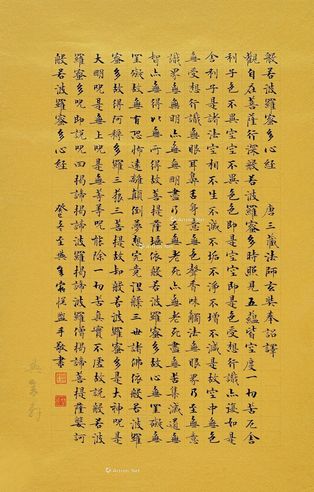 般若波羅蜜多心經 唐三藏法師玄奘奉詔譯
觀自在菩薩行深般若波羅蜜多時照見五蘊皆空度一切苦厄舍
利子色不異空空不異色色即是空空即是色受想行識亦復如是
舍利子是諸法空相不生不滅不垢不淨不增不減是故空中無色
無受想行識無眼耳鼻舌身意無色聲香味觸法無眼界乃至無意
識界無無明亦無無明盡乃至無老死亦無老死盡無苦集滅道無
智亦無得以無所得故菩提薩埵依般若波羅蜜多故心無罣礙無
罣礙故無有恐怖遠離顛倒夢想究竟涅槃三世諸佛依般若波羅
蜜多故得阿耨多羅三藐三菩提故知般若波羅蜜多是大神呪是
大明呪是無上呪是無等等呪能除一切苦真實不虛故說般若波
羅蜜多呪即說呪曰揭諦揭諦波羅揭諦波羅僧揭諦菩提薩婆訶
般若波羅蜜多心經
盥手敬書